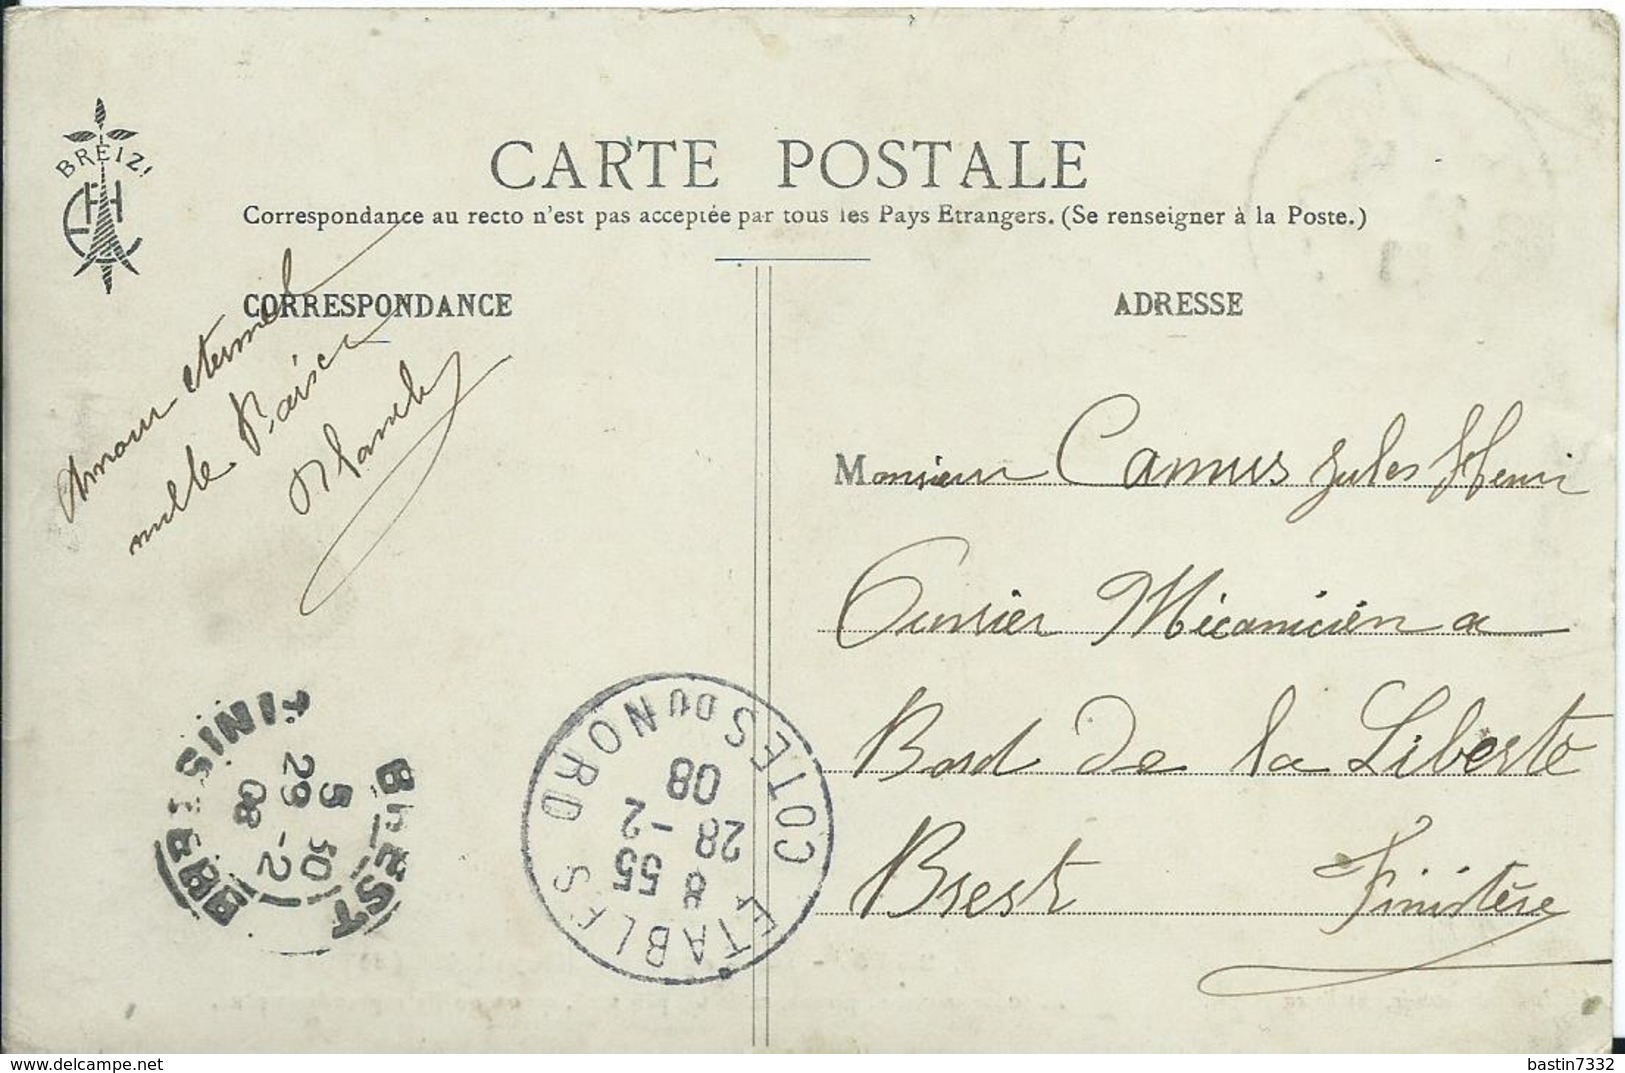 BREIZ!
CARTE POSTALE
Correspondance au recto n'est pas acceptée par tous les Pays Etrangers. (Se renseigner à la Poste.)
CORRESPONDANCE
Amour eternel
mille
Blanche
ADRESSE
Monsieur Camus Jules Henri
Ouvrier Mécanicien a
Bord de la Liberte
Brest Finistère
BREST
5 30
29 -2
08
FINISTERE
ETABLES
8 55
28 -2
08
COTES DU NORD
delcampe.net
bastin7332